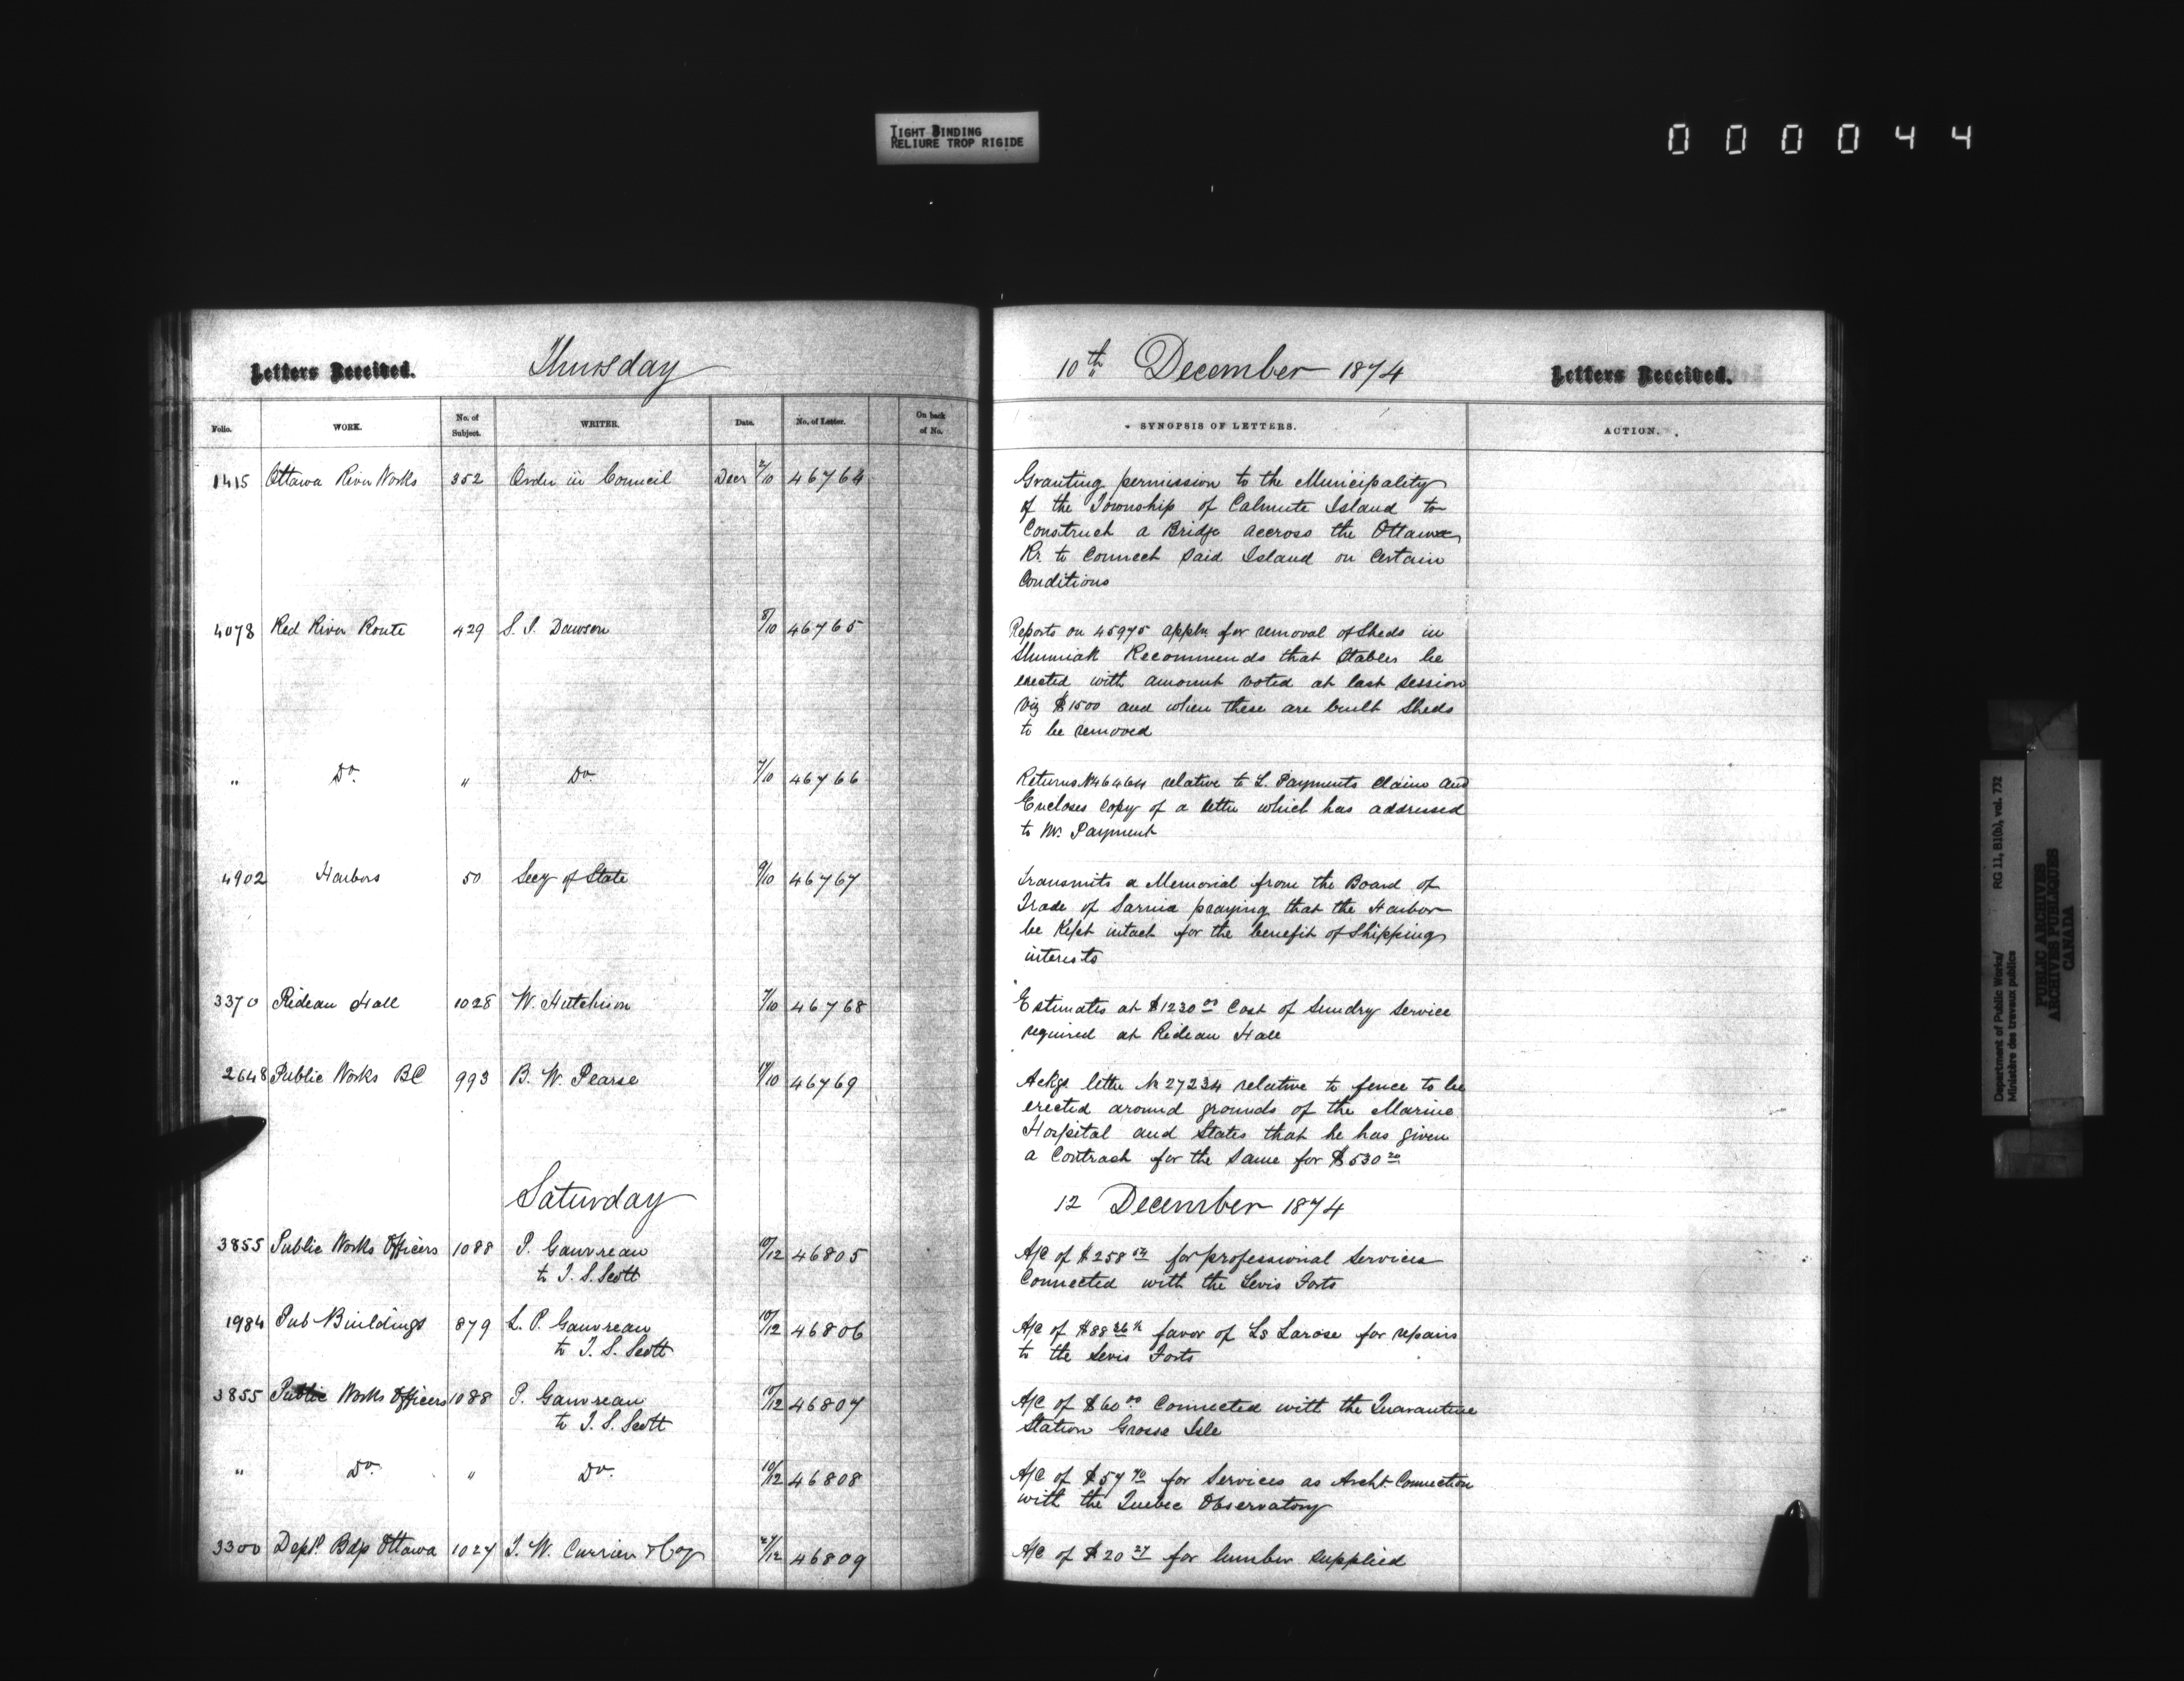 TIGHT BINDING
RELIURE TROP RIGIDE
000044
Letters Received.
Thursday
10th December 1874
Letters Received.
Folio.
WORK.
No. of Subject.
WRITER.
Date.
No. of Letter.
On back of No.
SYNOPSIS OF LETTERS.
ACTION.
1415 Ottawa River Works 352 Order in Council Decr 2/10 46764
Granting permission to the Municipality
of the Township of Calmute Island to
Construct a Bridge accross the Ottawa
Rr. to Connect said Island on Certain
Conditions
4078 Red River Route 429 S. J. Dawson 8/10 46765
Reports on 45975 appln for removal of Sheds in
Shuniah Recommends that Stables be
erected with amount voted at last session
viz $1500 and when these are built Sheds
to be removed
" Do. " Do. 7/10 46766
Returns No 46464 relative to L. Payments Claims and
Encloses Copy of a letter which has addressed
to Mr. Payment
4902 Harbors 50 Secy of State 9/10 46767
Transmits a Memorial from the Board of
Trade of Sarnia praying that the Harbor
be Kept intact for the benefit of Shipping
interests
3370 Rideau Hall 1028 W. Hutchison 7/10 46768
Estimates at $1230 00 Cost of Sundry Service
required at Rideau Hall
2648 Public Works BC 993 B. W. Pearse /10 46769
Ackgs letter No 27234 relative to fence to be
erected around grounds of the Marine
Hospital and States that he has given
a Contract for the Same for $530 20
Saturday
12 December 1874
3855 Public Works Officers 1088 P. Gauvreau 10/12 46805
to T. S. Scott
A/C of $258 for professional Services
Connected with the Levis Forts
1984 Pub Buildings 879 L. P. Gauvreau 10/12 46806
to T. S. Scott
A/C of $88 favor of Ls Larose for repairs
to the Levis Forts
3855 Public Works Officers 1088 P. Gauvreau 10/12 46807
to T. S. Scott
A/C of $60 00 Connected with the Quarantine
Station Grosse Isle
" Do. " Do. 10/12 46808
A/C of $57 70 for Services as Archt Connection
with the Quebec Observatory
3300 Deptl Bdgs Ottawa 1027 J. W. Currier & Coy /12 46809
A/C of $20 27 for lumber supplied
Department of Public Works/
Ministère des travaux publics
RG 11, B1(b), vol. 732
PUBLIC ARCHIVES
ARCHIVES PUBLIQUES
CANADA